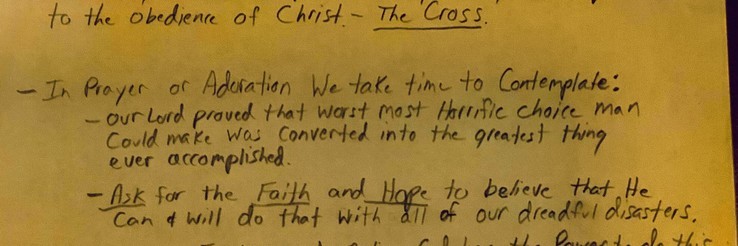 to the obedience of Christ. - The Cross.
- In Prayer or Adoration We take time to Contemplate:
- Our Lord proved that worst most Horrific choice man
Could make Was Converted into the greatest thing
ever accomplished.
- Ask for the Faith and Hope to believe that He
Can & will do that with all of our dreadful disasters.
the Power to do this